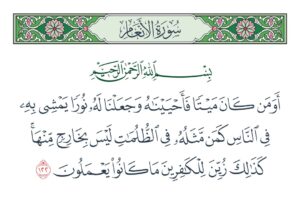 سُورَةُ الأَنْعَامِ
بِسْمِ اللَّهِ الرَّحْمَٰنِ الرَّحِيمِ
أَوَمَن كَانَ مَيْتًا فَأَحْيَيْنَٰهُ وَجَعَلْنَا لَهُۥ نُورًا يَمْشِى بِهِۦ
فِى ٱلنَّاسِ كَمَن مَّثَلُهُۥ فِى ٱلظُّلُمَٰتِ لَيْسَ بِخَارِجٍ مِّنْهَا ۚ
كَذَٰلِكَ زُيِّنَ لِلْكَٰفِرِينَ مَا كَانُوا۟ يَعْمَلُونَ ١٢٢